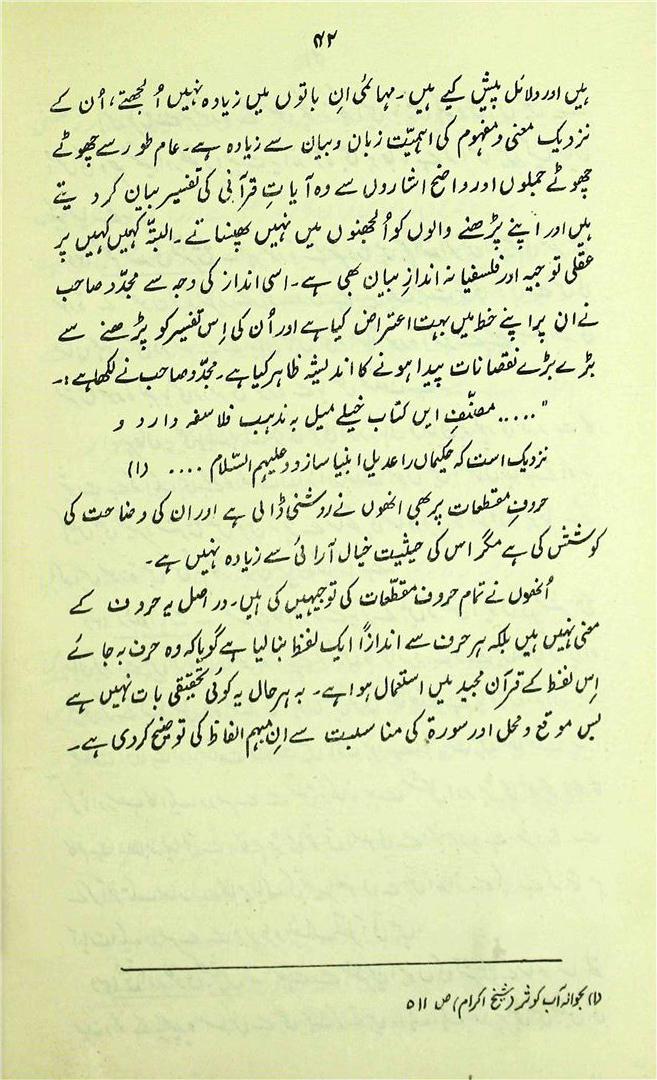 ۴۲
ہیں اور دلائل پیش کیے ہیں۔ مہائمی ان باتوں میں زیادہ نہیں اُلجھتے، اُن کے
نزدیک معنی و مفہوم کی اہمیّت زبان و بیان سے زیادہ ہے۔ عام طور سے چھوٹے
چھوٹے جملوں اور واضح اشاروں سے وہ آیاتِ قرآنی کی تفسیر بیان کر دیتے
ہیں اور اپنے پڑھنے والوں کو اُلجھنوں میں نہیں پھنساتے۔ البتّہ کہیں کہیں پر
عقلی توجیہ اور فلسفیانہ اندازِ بیان بھی ہے۔ اسی انداز کی وجہ سے مجدّد صاحب
نے ان پر اپنے خط میں بہت اعتراض کیا ہے اور اُن کی اِس تفسیر کو پڑھنے سے
بڑے بڑے نقصانات پیدا ہونے کا اندیشہ ظاہر کیا ہے۔ مجدّد صاحب نے لکھا ہے:۔
"..... مصنّفِ ایں کتاب خیلے میل بہ مذہب فلاسفہ دارد و
نزدیک است کہ حکیماں را عدیل انبیا سازد و علیہم السّلام .... (۱)
حروفِ مقطعات پر بھی انھوں نے روشنی ڈالی ہے اور ان کی وضاحت کی
کوشش کی ہے مگر اس کی حیثیت خیال آرائی سے زیادہ نہیں ہے۔
اُنھوں نے تمام حروف مقطّعات کی توجیہیں کی ہیں۔ در اصل یہ حروف کے
معنی نہیں ہیں بلکہ ہر حرف سے اندازاً ایک لفظ بنا لیا ہے گویا کہ وہ حرف بہ جائے
اِس لفظ کے قرآن مجید میں استعمال ہوا ہے۔ بہ ہر حال یہ کوئی تحقیقی بات نہیں ہے
بس موقع و محل اور سورۃ کی مناسبت سے اِن مبہم الفاظ کی توضیح کر دی ہے۔
(۱) بحوالہ آب کوثر (شیخ اکرام) ص ۵۱۱